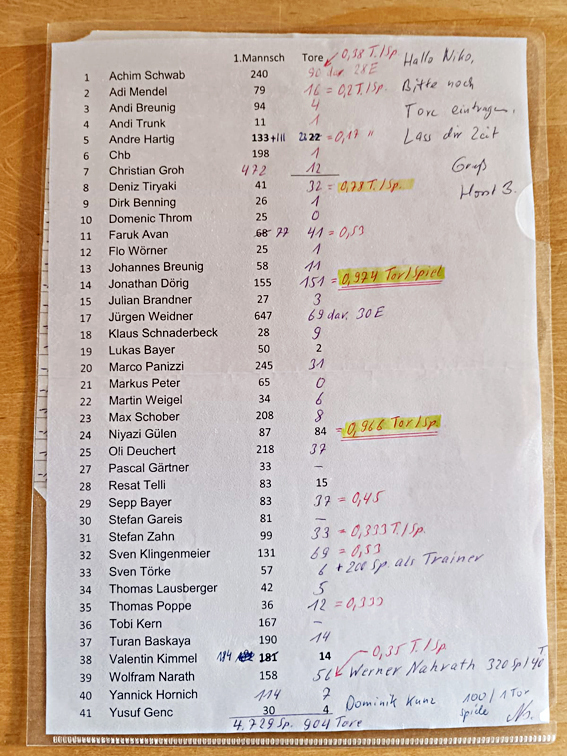 1.Mannsch Tore 0,38 T./Sp Hallo Niko,
1 Achim Schwab 240 90 dav. 28 E
2 Adi Mendel 79 16 = 0,2 T./Sp. Bitte noch
3 Andi Breunig 94 4 Tore eintragen,
4 Andi Trunk 11 1
5 Andre Hartig 133+III 22 = 0,17 " Lass dir Zeit
6 Chb 198 1
7 Christian Groh 472 12 Gruß
8 Deniz Tiryaki 41 32 = 0,78 T./Sp. Horst B.
9 Dirk Benning 26 1
10 Domenic Throm 25 0
11 Faruk Avan 68 77 41 = 0,53
12 Flo Wörner 25 1
13 Johannes Breunig 58 11
14 Jonathan Dörig 155 151 = 0,974 Tor/Spiel
15 Julian Brandner 27 3
17 Jürgen Weidner 647 69 dav. 30 E
18 Klaus Schnaderbeck 28 9
19 Lukas Bayer 50 2
20 Marco Panizzi 245 31
21 Markus Peter 65 0
22 Martin Weigel 34 6
23 Max Schober 208 8
24 Niyazi Gülen 87 84 = 0,966 Tor/Sp.
25 Oli Deuchert 218 37
27 Pascal Gärtner 33 –
28 Resat Telli 83 15
29 Sepp Bayer 83 37 = 0,45
30 Stefan Gareis 81 –
31 Stefan Zahn 99 33 = 0,333 T./Sp.
32 Sven Klingenmeier 131 69 = 0,53
33 Sven Törke 57 6 + 200 Sp. als Trainer
34 Thomas Lausberger 42 5
35 Thomas Poppe 36 12 = 0,333
36 Tobi Kern 167 –
37 Turan Baskaya 190 14
38 Valentin Kimmel 184 181 14 0,35 T./Sp
39 Wolfram Narath 158 56 Werner Nahrath 320 Sp/40 T
40 Yannick Hornich 114 7
41 Yusuf Genc 30 4 Dominik Kunz 100/1 Tor
Spiele
4.729 Sp. 904 Tore